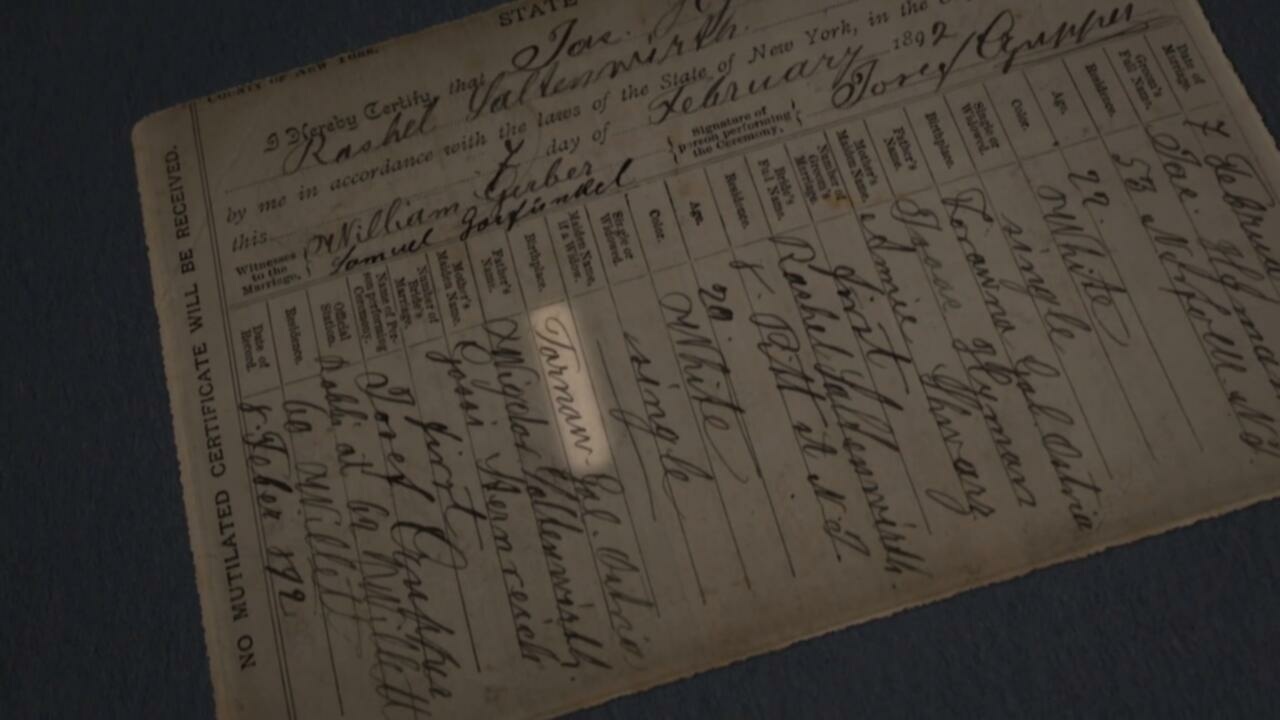 STATE
COUNTY OF NEW YORK.
I Hereby Certify, that Jos. Hy
Rashel Saltenwirth.
by me in accordance with the laws of the State of New York, in the
this 7 day of February 1892
Witnesses to the Marriage,
William Gerber
Samuel Garfunkel
Signature of person performing the Ceremony,
Josef Gupper
Date of Marriage. 7 Februa
Groom's Full Name. Jos. Hyman
Residence. 53 Norfolk
Age. 22.
Color. White
Single or Widowed. single
Birthplace. Gal. Austria
Father's Name. Hyman
Mother's Maiden Name.
Number of Groom's Marriage. first
Bride's Full Name. Rashel Saltenwirth.
Residence. 8. Pitt st
Age. 20
Color. White
Single or Widowed. single
Maiden Name, if a Widow.
Birthplace. Tarnaw. Gal. Austria
Father's Name. Saltenwirth
Mother's Maiden Name. Gossi
Number of Bride's Marriage. first
Name of Person performing Ceremony. Josef Gupper
Official Station. Rabbi at 69 Willett
Residence. 69 Willett
Date of Record. 8. Feber 1892
NO MUTILATED CERTIFICATE WILL BE RECEIVED.